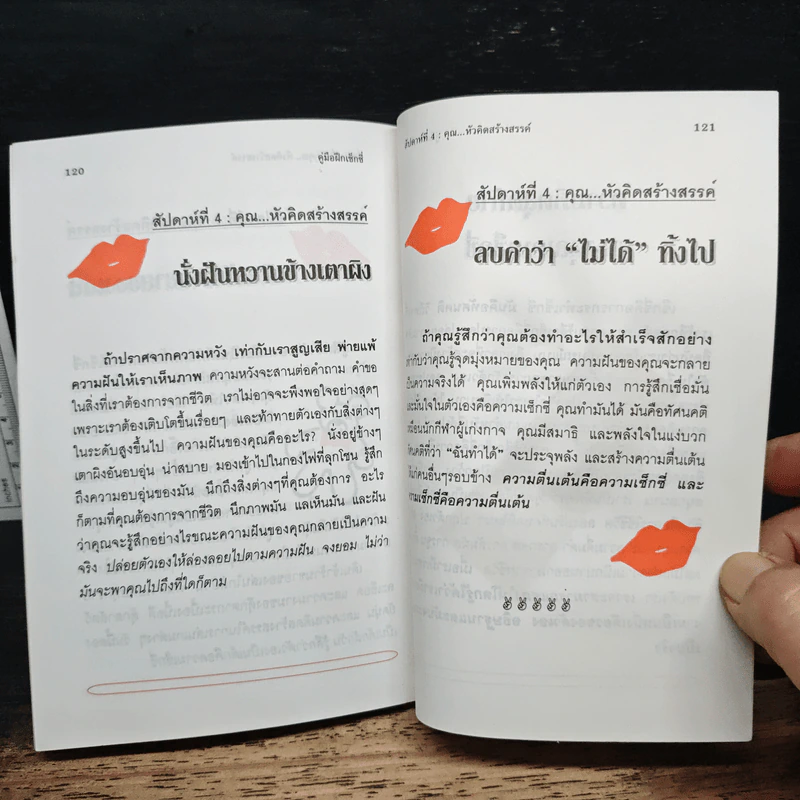 120
คู่มือฝึกเซ็กซี่
สัปดาห์ที่ 4 : คุณ...หัวคิดสร้างสรรค์
นั่งฝันหวานข้างเตาผิง
ถ้าปราศจากความหวัง เท่ากับเราสูญเสีย พ่ายแพ้
ความฝันให้เราเห็นภาพ ความหวังจะสานต่อคำถาม คำขอ
ในสิ่งที่เราต้องการจากชีวิต เราไม่อาจจะพึงพอใจอย่างสุดๆ
เพราะเราต้องเติบโตขึ้นเรื่อยๆ และท้าทายตัวเองกับสิ่งต่างๆ
ในระดับสูงขึ้นไป ความฝันของคุณคืออะไร? นั่งอยู่ข้างๆ
เตาผิงอันอบอุ่น น่าสบาย มองเข้าไปในกองไฟที่ลุกโชน รู้สึก
ถึงความอบอุ่นของมัน นึกถึงสิ่งต่างๆที่คุณต้องการ อะไร
ก็ตามที่คุณต้องการจากชีวิต นึกภาพมัน แลเห็นมัน และฝัน
ว่าคุณจะรู้สึกอย่างไรขณะความฝันของคุณกลายเป็นความ
จริง ปล่อยตัวเองให้ล่องลอยไปตามความฝัน จงยอม ไม่ว่า
มันจะพาคุณไปถึงที่ใดก็ตาม
สัปดาห์ที่ 4 : คุณ...หัวคิดสร้างสรรค์
121
สัปดาห์ที่ 4 : คุณ...หัวคิดสร้างสรรค์
ลบคำว่า “ไม่ได้” ทิ้งไป
ถ้าคุณรู้สึกว่าคุณต้องทำอะไรให้สำเร็จสักอย่าง
เท่ากับว่าคุณรู้จุดมุ่งหมายของคุณ ความฝันของคุณจะกลาย
เป็นความจริงได้ คุณเพิ่มพลังให้แก่ตัวเอง การรู้สึกเชื่อมั่น
และมั่นใจในตัวเองคือความเซ็กซี่ คุณทำมันได้ มันคือทัศนคติ
เหมือนนักกีฬาผู้เก่งกาจ คุณมีสมาธิ และพลังใจในแง่บวก
ทัศนคติที่ว่า “ฉันทำได้” จะประจุพลัง และสร้างความตื่นเต้น
ให้แก่คนอื่นๆรอบข้าง ความตื่นเต้นคือความเซ็กซี่ และ
ความเซ็กซี่คือความตื่นเต้น